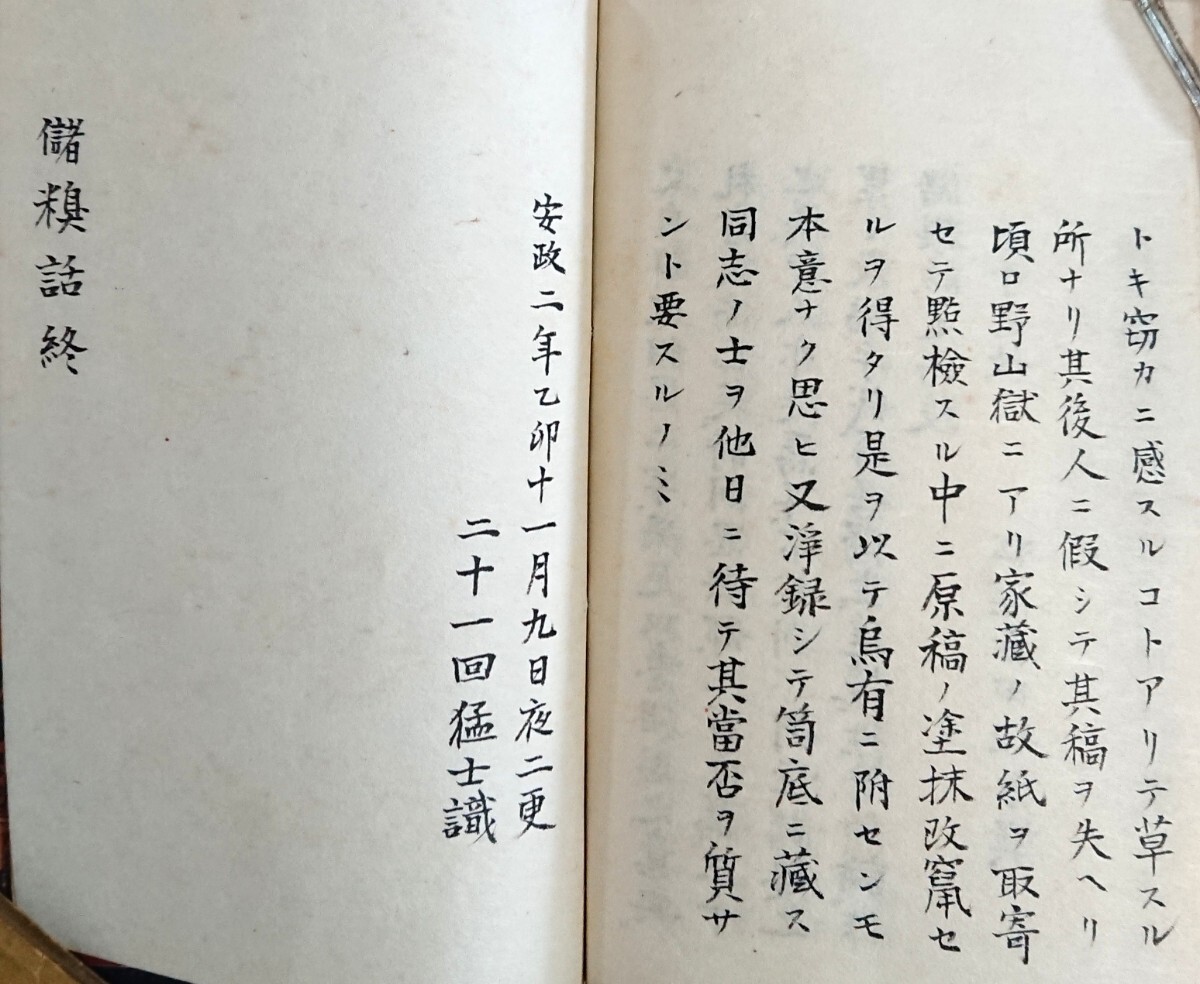 トキ窃カニ感スルコトアリテ草スル
所ナリ其後人ニ假シテ其稿ヲ失ヘリ
頃ロ野山獄ニアリ家藏ノ故紙ヲ取寄
セテ點檢スル中ニ原稿ノ塗抹改竄セ
ルヲ得タリ是ヲ以テ烏有ニ附センモ
本意ナク思ヒ又淨録シテ筒底ニ藏ス
同志ノ士ヲ他日ニ待テ其當否ヲ質サ
ント要スルノミ
安政二年乙卯十一月九日夜二更
二十一回猛士識
儲糗話終